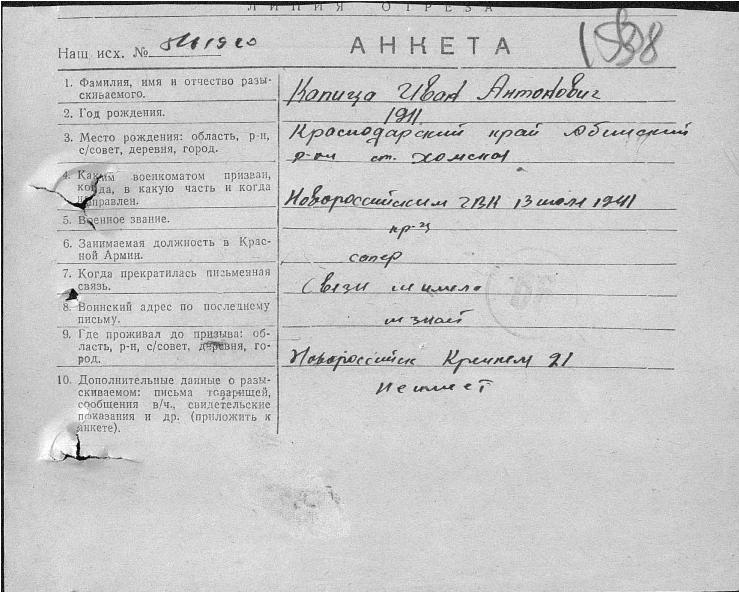 ЛИНИЯ ОТРЕЗА
Наш исх. №
АНКЕТА
1. Фамилия, имя и отчество разы-
скиваемого.
Капица Иван Антонович
2. Год рождения.
1911
3. Место рождения: область, р-н,
с/совет, деревня, город.
Краснодарский край Абинский
р-он ст. Холмская
4. Каким военкоматом призван,
когда, в какую часть и когда
направлен.
Новороссийским ГВК 13 июля 1941
5. Военное звание.
кр-ц
6. Занимаемая должность в Крас-
ной Армии.
сапер
7. Когда прекратилась письменная
связь.
Связи не имела
8. Воинский адрес по последнему
письму.
не знает
9. Где проживал до призыва: об-
ласть, р-н, с/совет, деревня, го-
род.
Новороссийск 21
10. Дополнительные данные о разы-
скиваемом: письма товарищей,
сообщения в/ч., свидетельские
показания и др. (приложить к
анкете).
Не имеет